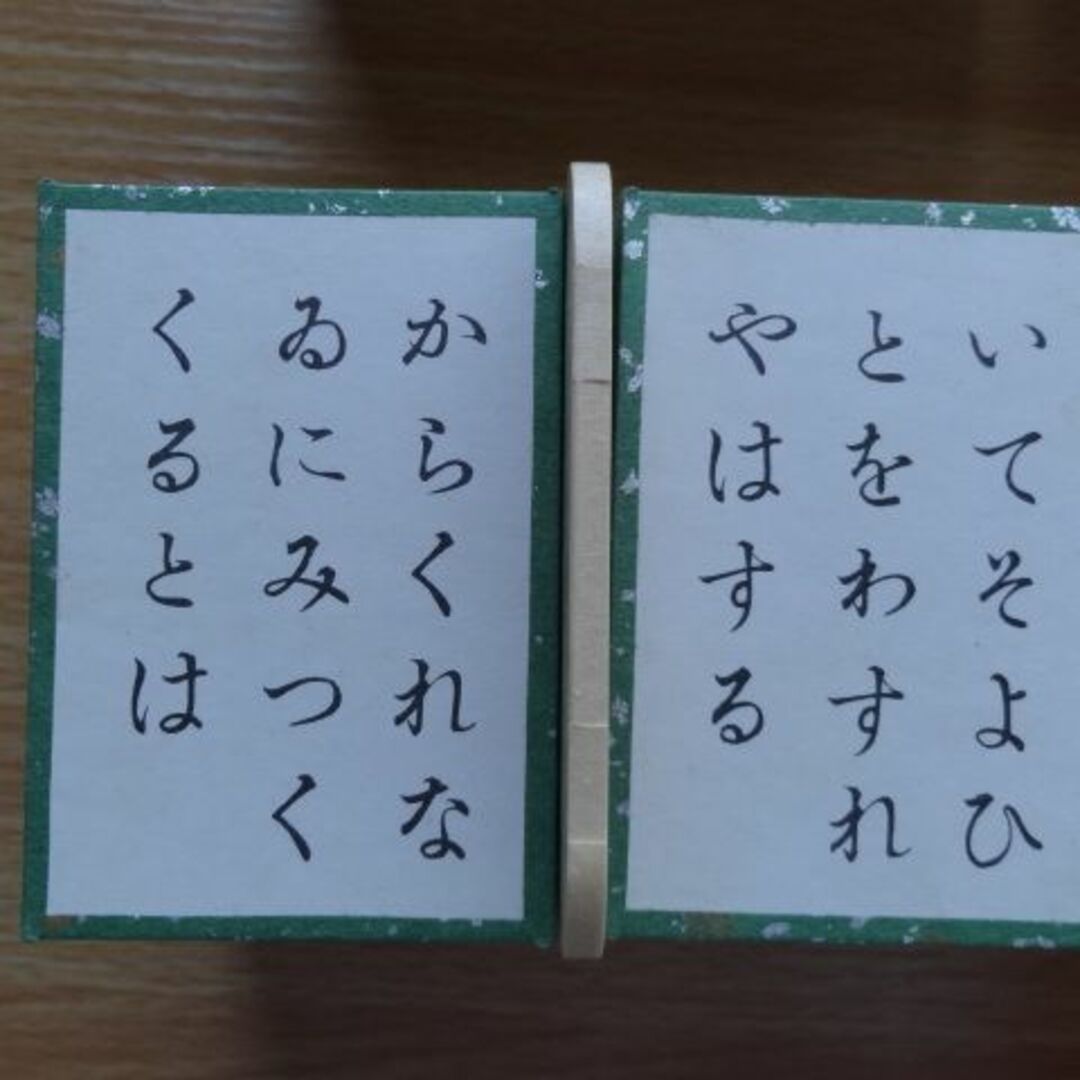 いてそよひ
とをわすれ
やはする
からくれな
ゐにみつく
くるとは